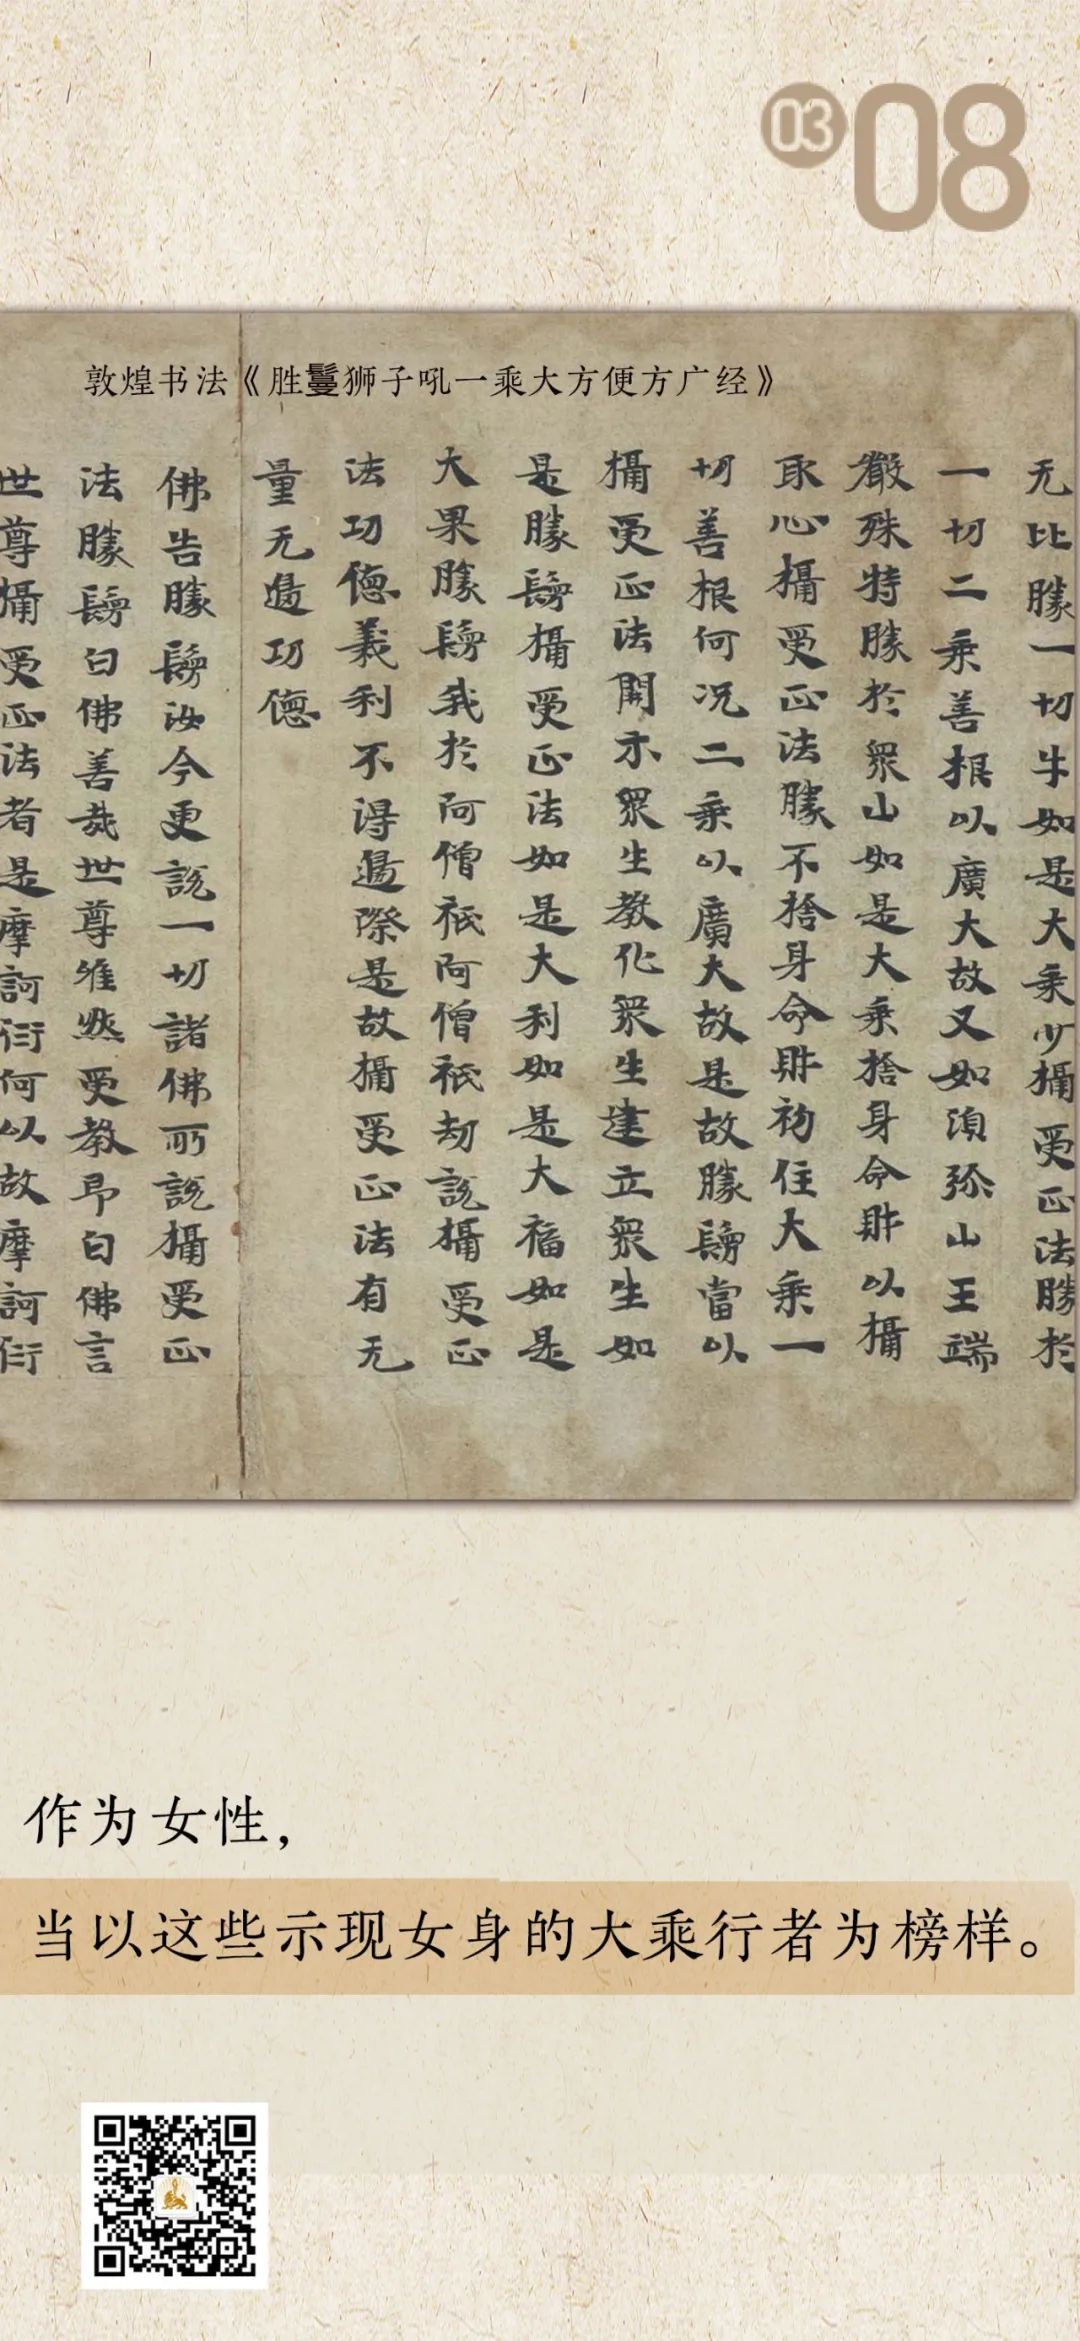 03
08
敦煌书法《胜鬘狮子吼一乘大方便方广经》
无比勝一切牛如是大乘少攝受正法勝於
一切二乘善根以廣大故又如湏弥山王端
嚴殊特勝於衆山如是大乘捨身命財以攝
取心攝受正法勝不捨身命財初住大乘一
切善根何况二乘以廣大故是故勝鬘當以
攝受正法開示衆生教化衆生建立衆生如
是勝鬘攝受正法如是大利如是大福如是
大果勝鬘我於阿僧祇阿僧祇劫說攝受正
法功德義利不得邊際是故攝受正法有无
量无邊功德
佛告勝鬘汝今更說一切諸佛所說攝受正
法勝鬘白佛善哉世尊唯然受教即白佛言
世尊攝受正法者是摩訶衍何以故摩訶衍
作为女性，
当以这些示现女身的大乘行者为榜样。